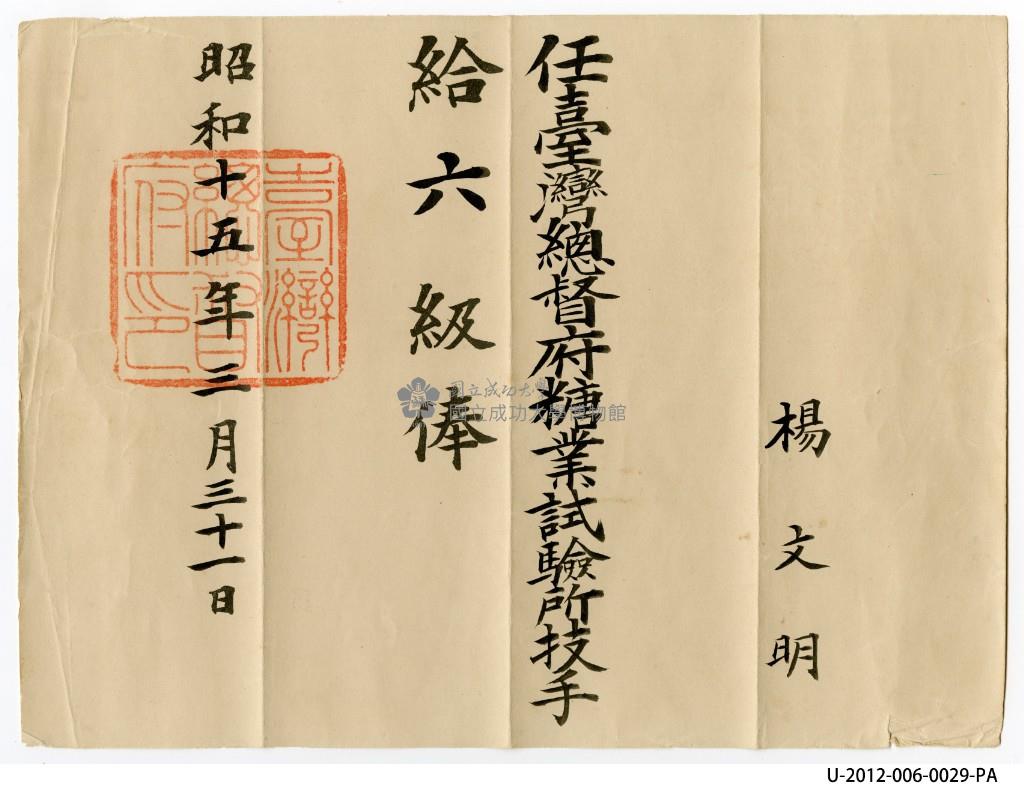 楊文明
任臺灣總督府糖業試驗所技手
給六級俸
昭和十五年三月三十一日
臺灣總督府印
國立成功大學
國立成功大學博物館
U-2012-006-0029-PA